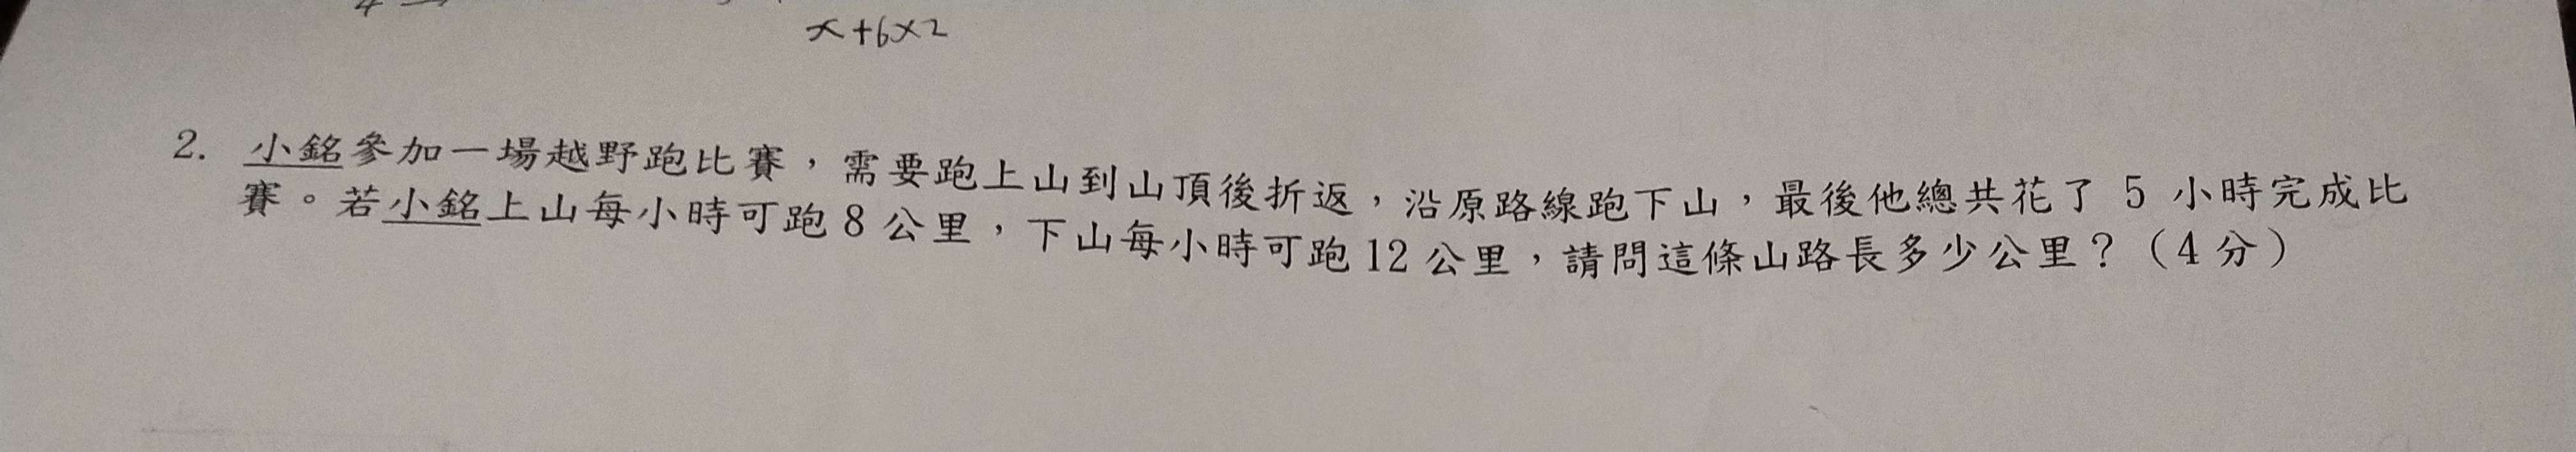 x+6x2
2. 小銘參加一場越野跑比賽，需要跑上山到山頂後折返，沿原路線跑下山，最後他總共花了 5 小時完成比
賽。若小銘上山每小時可跑 8 公里，下山每小時可跑 12 公里，請問這條山路長多少公里？（4 分）